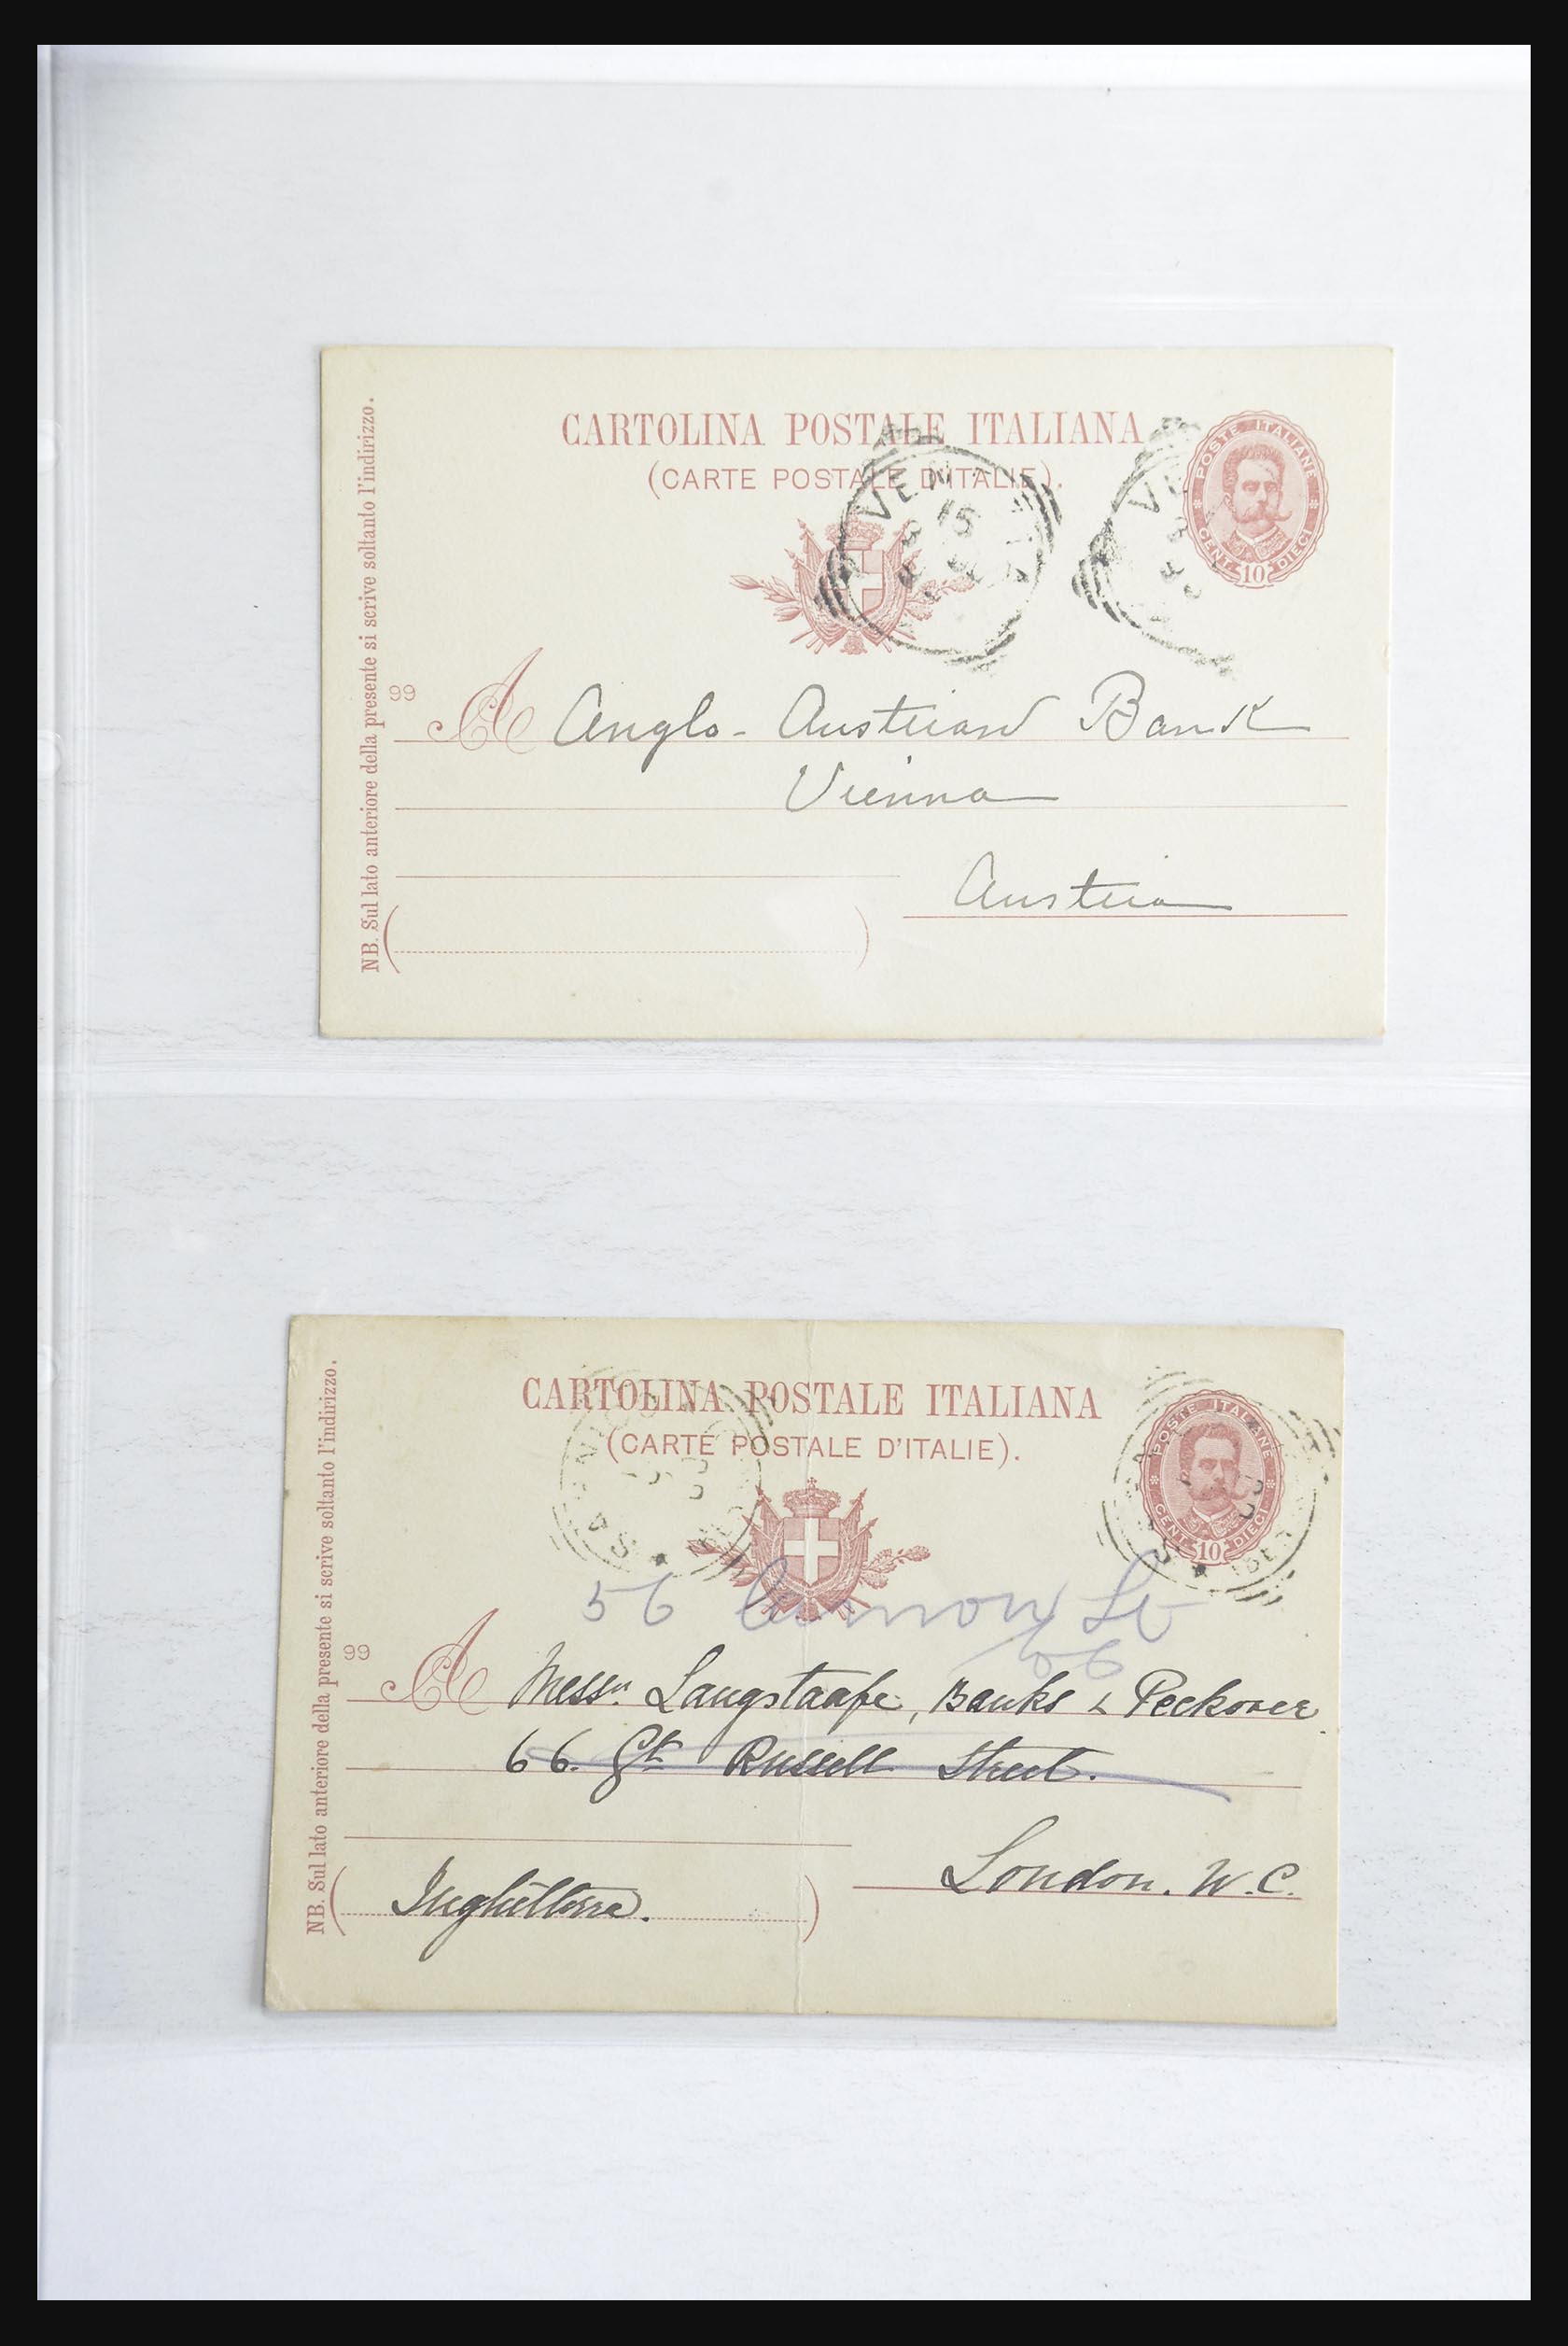 CARTOLINA POSTALE ITALIANA
(CARTE POSTALE D'ITALIE).
POSTE ITALIANE
CENT. 10 DIECI
NB. Sul lato anteriore della presente si scrive soltanto l'indirizzo.
99
A Anglo-Austrian Bank
Vienna
Austria
CARTOLINA POSTALE ITALIANA
(CARTE POSTALE D'ITALIE).
POSTE ITALIANE
CENT. 10 DIECI
NB. Sul lato anteriore della presente si scrive soltanto l'indirizzo.
56 Cannon St
99
A Messrs. Langstaafe, Banks & Peckover
66. Gt. Russell Street.
London. W.C.
(Inghilterra.)